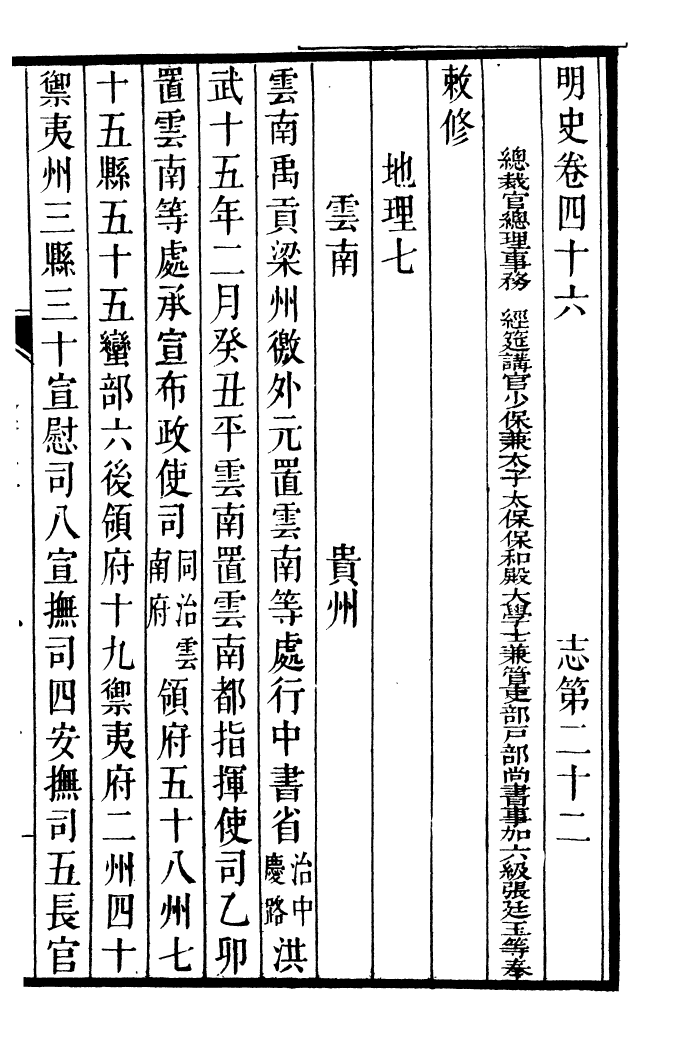 明史卷四十六　志第二十二
總裁官總理事務　經筵講官少保兼太子太保保和殿大學士兼管吏部戶部尚書事加六級張廷玉等奉
敕修
地理七
雲南　貴州
雲南禹貢梁州徼外元置雲南等處行中書省治中慶路洪
武十五年二月癸丑平雲南置雲南都指揮使司乙卯
置雲南等處承宣布政使司同治雲南府領府五十八州七
十五縣五十五蠻部六後領府十九禦夷府二州四十
禦夷州三縣三十宣慰司八宣撫司四安撫司五長官